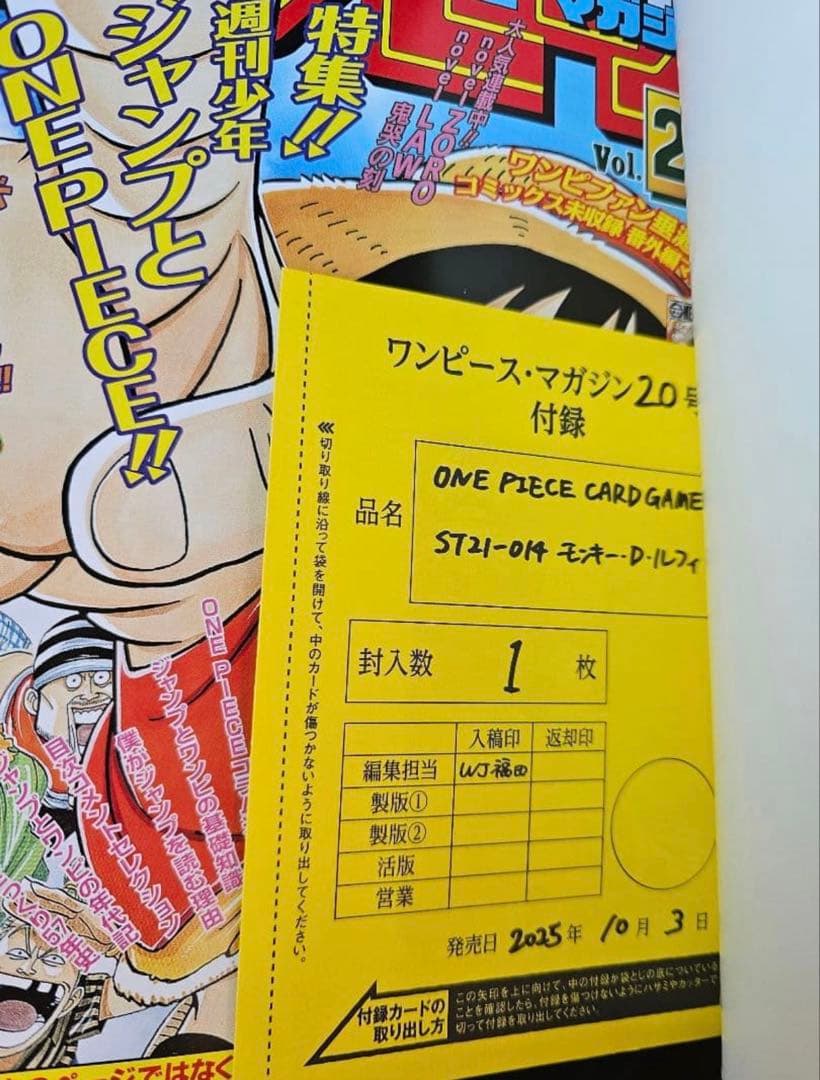 特集!!
週刊少年
ジャンプと
ONE PIECE!!
マガジ
大人気連載中!!
novel ZORO
novel LAW
鬼哭の刻
Vol. 2
ワンピファン
コミックス未収録 番外編マ
ワンピース・マガジン20号
付録
品名
ONE PIECE CARD GAME
ST21-014 モンキー・D・ルフィ
封入数 1 枚
入稿印 返却印
編集担当 WJ福田
製版①
製版②
活版
営業
発売日 2025年 10月 3日
切り取り線に沿って袋を開けて、中のカードが傷つかないように取り出してください。
付録カードの
取り出し方
この矢印を上に向けて、中の付録が袋とじの底についている
ことを確認したら、付録を傷つけないようにハサミやカッターで
切って付録を取り出してください。
ONE PIECEコミ
ジャンプとワンピの基礎知識
僕がジャンプを読む理由
目次コメントセレクション
ジャンプとワンピの年代記
ページではなく